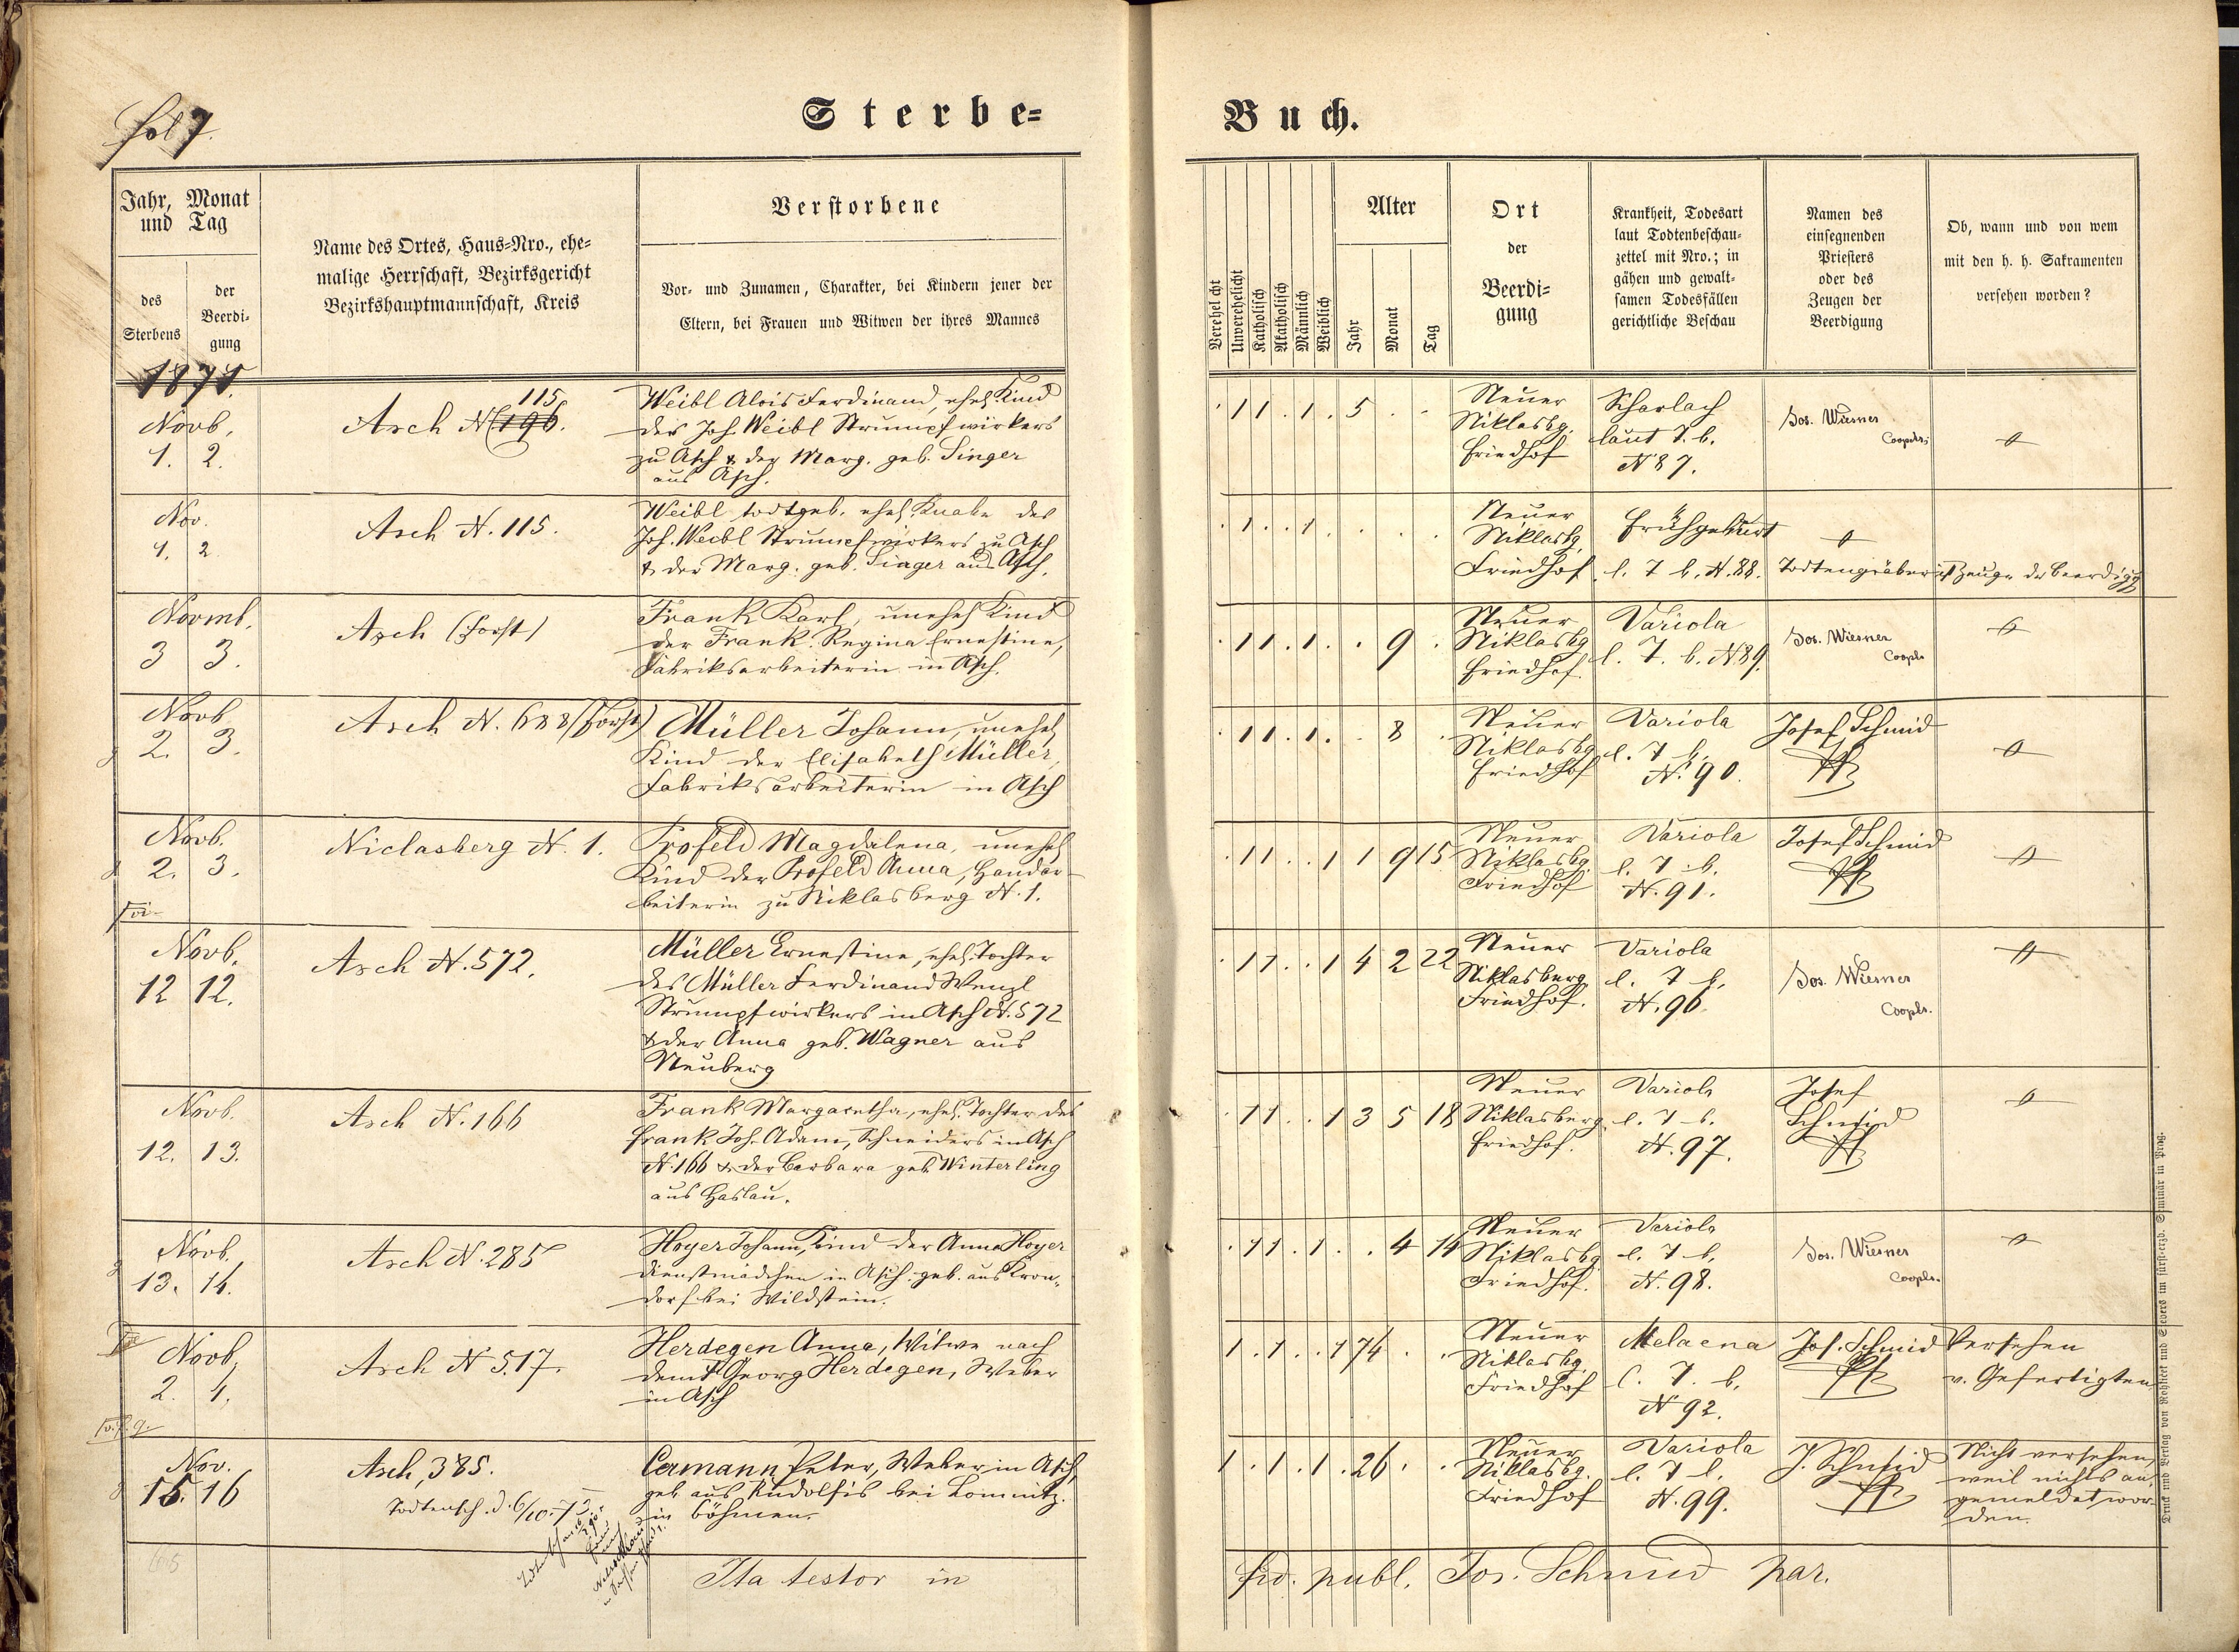 fol 7.
Sterbe=
Buch.
Jahr, Monat
und Tag
des
Sterbens
der
Beerdi-
gung
Name des Ortes, Haus=Nro., ehe=
malige Herrschaft, Bezirksgericht
Bezirkshauptmannschaft, Kreis
Verstorbene
Vor= und Zunamen, Charakter, bei Kindern jener der
Eltern, bei Frauen und Witwen der ihres Mannes
Verehelicht
Unverehelicht
Katholisch
Akatholisch
Männlich
Weiblich
Alter
Jahr
Monat
Tag
Ort
der
Beerdi=
gung
Krankheit, Todesart
laut Todtenbeschau=
zettel mit Nro.; in
gähen und gewalt=
samen Todesfällen
gerichtliche Beschau
Namen des
einsegnenden
Priesters
oder des
Zeugen der
Beerdigung
Ob, wann und von wem
mit den h. h. Sakramenten
versehen worden?
1871.
Novb.
1. 2.
115.
Asch N 196.
Weibl Alois Ferdinand, ehel. Kind
des Joh. Weibl Strumpfwirkers
zu Asch & der Marg. geb. Singer
aus Asch.
. 1 1 . 1 . 5 . .
Neuer
Niklasbg.
Friedhof
Scharlach
laut T. b.
N 87.
Jos. Wiesner
Cooprs.
Nov.
1. 2
Asch N. 115.
Weibl todtgeb. ehel. Knabe des
Joh. Weibl Strumpfwirkers zu Asch
& der Marg. geb. Singer aus Asch.
. 1 . . 1 . . . .
Neuer
Niklasbg.
Friedhof
Frühgeburt
l. T. b. N. 88.
Todtengräber ist Zeuge der Beerdigg
Novmb.
3 3.
Asch (Forst)
Frank Karl, unehel. Kind
der Frank Regina Ernestine,
Fabriksarbeiterin in Asch.
. 1 1 . 1 . . 9 .
Neuer
Niklasbg
Friedhof.
Variola
l. T. b. N 89.
Jos. Wiesner
Coopls
Novb
2. 3.
Asch N. 688 (Forst)
Müller Johann, unehel
Kind der Elisabeth Müller,
Fabriksarbeiterin in Asch
. 1 1 . 1 . . 8 .
Neuer
Niklasbg
Friedhof
Variola
l. T. b.
N. 90.
Josef Schmid
Novb.
2. 3.
Niclasberg N. 1.
Profeld Magdalena, unehel
Kind der Profeld Anna, Handar-
beiterin zu Niklasberg N. 1.
. 1 1 . . 1 1 9 15
Neuer
Niklasbg.
Friedhof
Variola
l. T. b.
N. 91.
Josef Schmid
Novb.
12 12.
Asch N. 572.
Müller Ernestine, ehel. Tochter
des Müller Ferdinand Wenzl
Strumpfwirkers in Asch N. 572
& der Anna geb. Wagner aus
Neuberg
. 1 1 . . 1 4 2 22
Neuer
Niklasberg
Friedhof.
Variola
l. T. b.
N. 96.
Jos. Wiesner
Coopls.
Novb.
12. 13.
Asch N. 166
Frank Margaretha, ehel. Tochter des
Frank Joh. Adam, Schneiders in Asch
N. 166 & der Barbara geb. Winterling
aus Haslau.
. 1 1 . . 1 3 5 18
Neuer
Niklasberg
Friedhof.
Variola
l. T. b.
N. 97.
Josef
Schmid
Novb.
13. 14.
Asch N. 285
Hoyer Johann, Kind der Anna Hoyer
Dienstmädchen in Asch geb. aus Kron-
dorf bei Wildstein.
. 1 1 . 1 . . 4 14
Neuer
Niklasbg
Friedhof.
Variola
l. T. b.
N. 98.
Jos. Wiesner
Coopls.
Novb.
2. 4.
Asch N 517.
Herdegen Anna, Witwe nach
dem Georg Herdegen, Weber
in Asch
1 . 1 . . 1 74 . .
Neuer
Niklasbg.
Friedhof
Melaena
l. T. b.
N 92.
Jos. Schmid
Versehen
v. Gefertigten
Nov.
15. 16
Asch, 385.
Todtensch. d. 6/10. 73
Cermann Peter, Weber in Asch,
geb. aus Rudolfis bei Lomnitz
in Böhmen.
1 . 1 . 1 . 26 . .
Neuer
Niklasbg.
Friedhof
Variola
l. T. b.
N. 99.
J. Schmid
Nicht versehen,
weil nichts an-
gemeldet wor-
den.
Ita testor in
fid. publ. Jos. Schmid par.
Druck und Verlag von Rohliček und Sievers im fürst-erzb. Seminär in Prag.